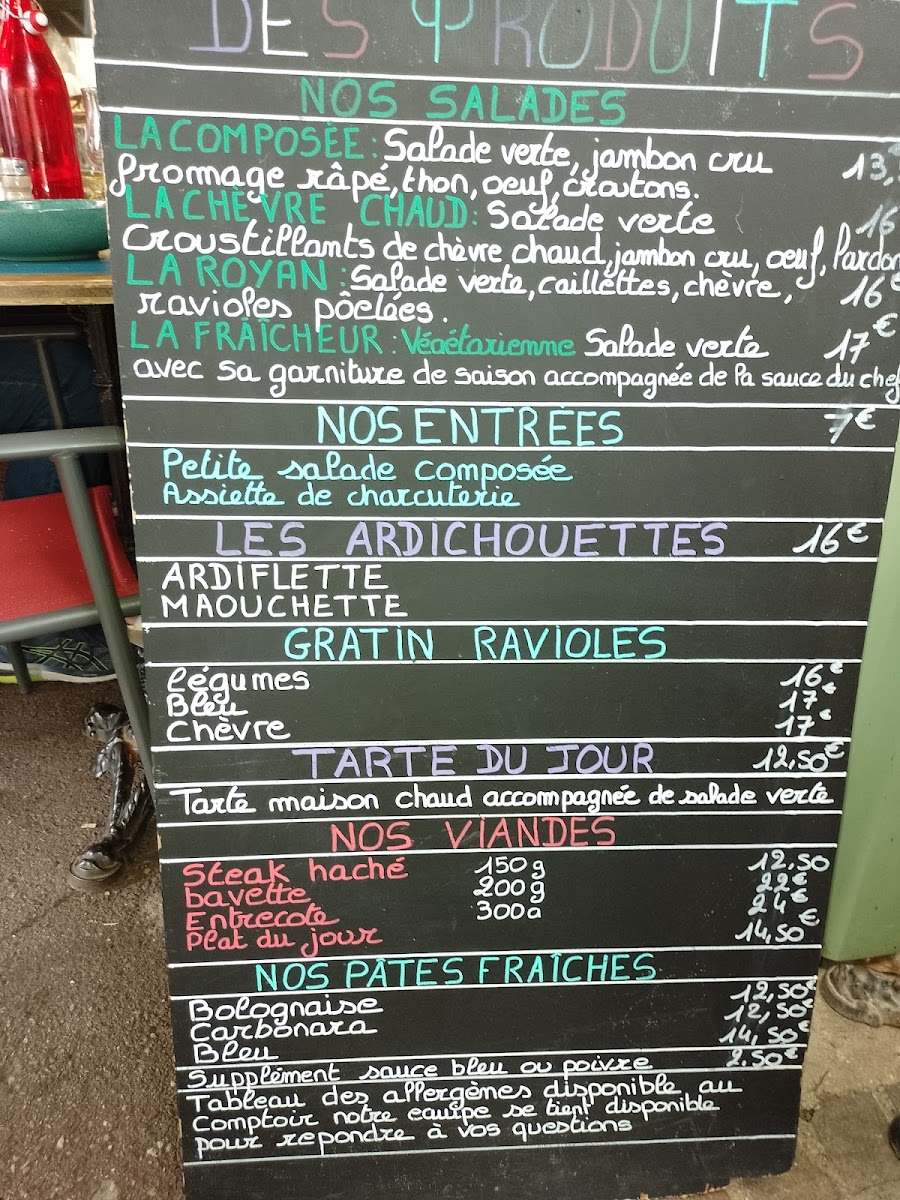 DES PRODUITS
NOS SALADES
LA COMPOSÉE : Salade verte, jambon cru 13,
fromage râpé, thon, oeuf, croutons.
LA CHÈVRE CHAUD : Salade verte 16
Croustillants de chèvre chaud, jambon cru, oeuf, lardon
LA ROYAN : Salade verte, caillettes, chèvre, 16€
ravioles pôelées.
LA FRAÎCHEUR : Végétarienne Salade verte 17€
avec sa garniture de saison accompagnée de la sauce du chef
NOS ENTRÉES 7€
Petite salade composée
Assiette de charcuterie
LES ARDICHOUETTES 16€
ARDIFLETTE
MAOUCHETTE
GRATIN RAVIOLES
légumes 16€
Bleu 17€
Chèvre 17€
TARTE DU JOUR 12,50€
Tarte maison chaud accompagnée de salade verte
NOS VIANDES
Steak haché 150g 12.50
bavette 200g 22€
Entrecote 300g 24€
Plat du jour 14,50€
NOS PÂTES FRAÎCHES
Bolognaise 12,50€
Carbonara 12,50€
Bleu 14,50€
Supplément sauce bleu ou poivre 2.50€
Tableau des allergènes disponible au
Comptoir notre equipe se tient disponible
pour repondre à vos questions